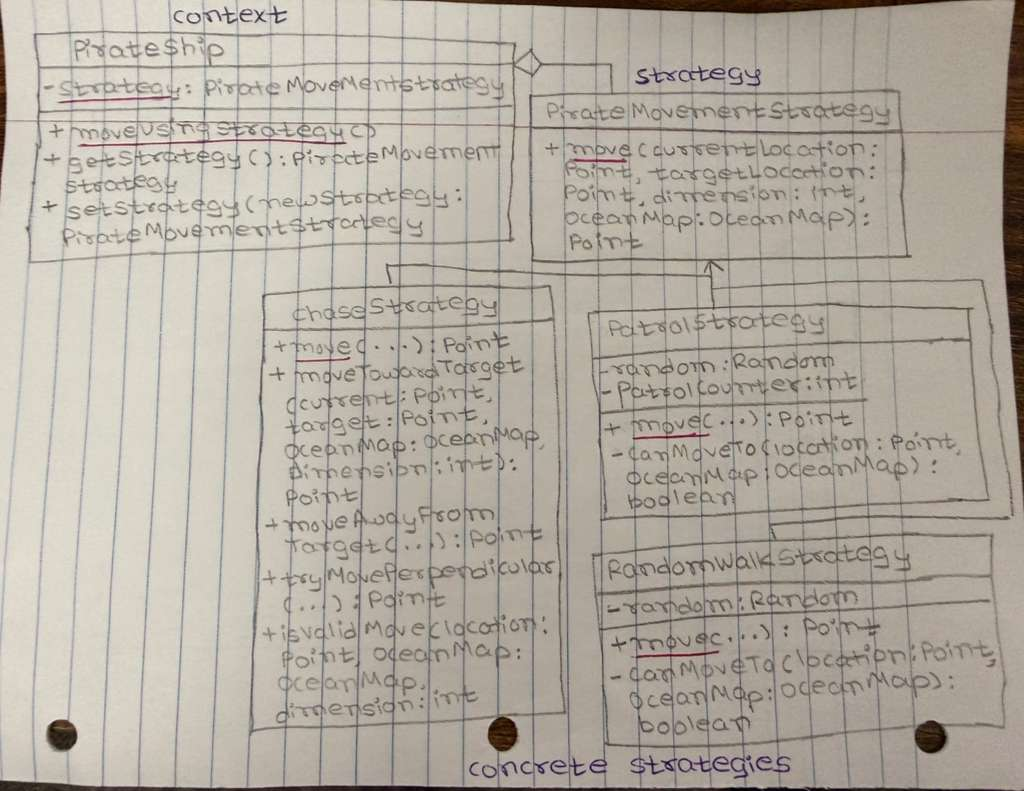 context
PirateShip
- strategy: PirateMovementStrategy
+ moveUsingStrategy()
+ getStrategy(): PirateMovement
strategy
+ setStrategy(newStrategy:
PirateMovementStrategy
strategy
PirateMovementStrategy
+ move(currentLocation:
Point, targetLocation:
Point, dimension: int,
oceanMap: OceanMap):
Point
chaseStrategy
+ move(...): Point
+ moveTowardTarget
(current: Point,
target: Point,
oceanMap: OceanMap,
dimension: int):
Point
+ moveAwayFrom
Target(...): Point
+ tryMovePerpendicular
(...): Point
+ isValidMove(location:
Point, OceanMap:
OceanMap,
dimension: int
PatrolStrategy
- random: Random
- PatrolCounter: int
+ move(...): Point
- canMoveTo(location: Point,
oceanMap: OceanMap):
boolean
RandomWalkStrategy
- random: Random
+ move(...): Point
- canMoveTo(location: Point,
oceanMap: OceanMap):
boolean
concrete strategies